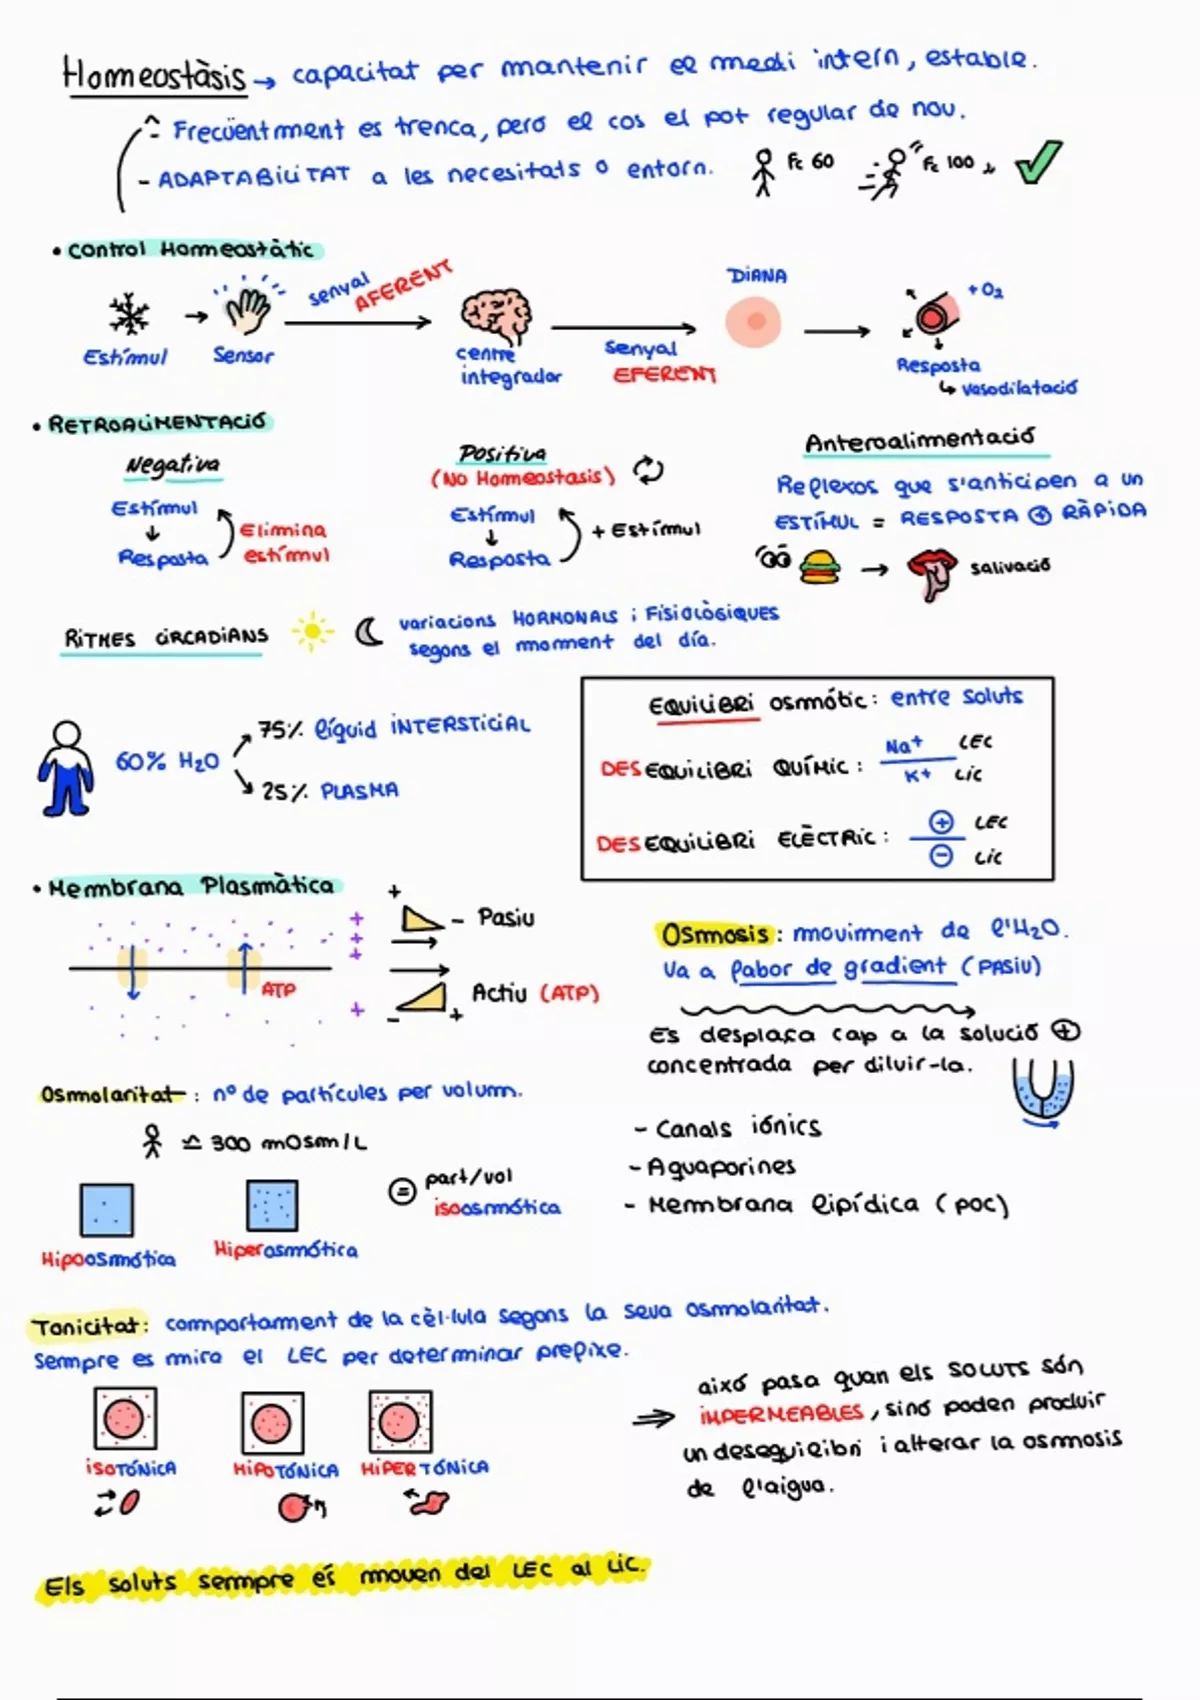 Homeostàsis → capacitat per mantenir el medi intern, estable.
- Freqüentment es trenca, però el cos el pot regular de nou.
- ADAPTABILITAT a les necesitats o entorn. Fc 60 Fc 100
• Control Homeostàtic
Estímul → Sensor
senyal AFERENT
centre integrador
senyal EFERENT
DIANA
+ O2
Resposta
↳ vasodilatació
• RETROALIMENTACIÓ
Negativa
Estímul
↓
Resposta
Elimina
estímul
Positiva
(No Homeostasis)
Estímul
↓
Resposta
+ Estímul
Anteroalimentació
Reflexos que s'anticipen a un
ESTÍMUL = RESPOSTA ⊕ RÀPIDA
→ salivació
RITMES CIRCADIANS
variacions HORMONALS i FISIOLÒGIQUES
segons el moment del día.
60% H2O
75% líquid INTERSTICIAL
25% PLASMA
EQUILIBRI osmótic: entre soluts
DESEQUILIBRI QUÍMIC: Na+ LEC
K+ LIC
DESEQUILIBRI ELÈCTRIC: ⊕ LEC
⊖ LIC
• Membrana Plasmàtica
ATP
+
+
+
+
+ - Pasiu
- + Actiu (ATP)
Osmosis: moviment de l'H2O.
Va a fabor de gradient (PASIU)
Es desplaça cap a la solució ⊕
concentrada per diluir-la.
- Canals iónics
- Aquaporines
- Membrana lipídica (poc)
Osmolaritat: nº de partícules per volum.
≃ 300 mOsm/L
Hipoosmótica
Hiperosmótica
= part/vol
isoosmótica
Tonicitat: comportament de la cèl·lula segons la seva osmolaritat.
Sempre es mira el LEC per determinar prefixe.
ISOTÓNICA
HIPOTÓNICA
HIPERTÓNICA
⇒ aixó pasa quan els SOLUTS són
IMPERMEABLES, sinó poden produir
un desequilibri i alterar la osmosis
de l'aigua.
Els soluts sempre es mouen del LEC al LIC.